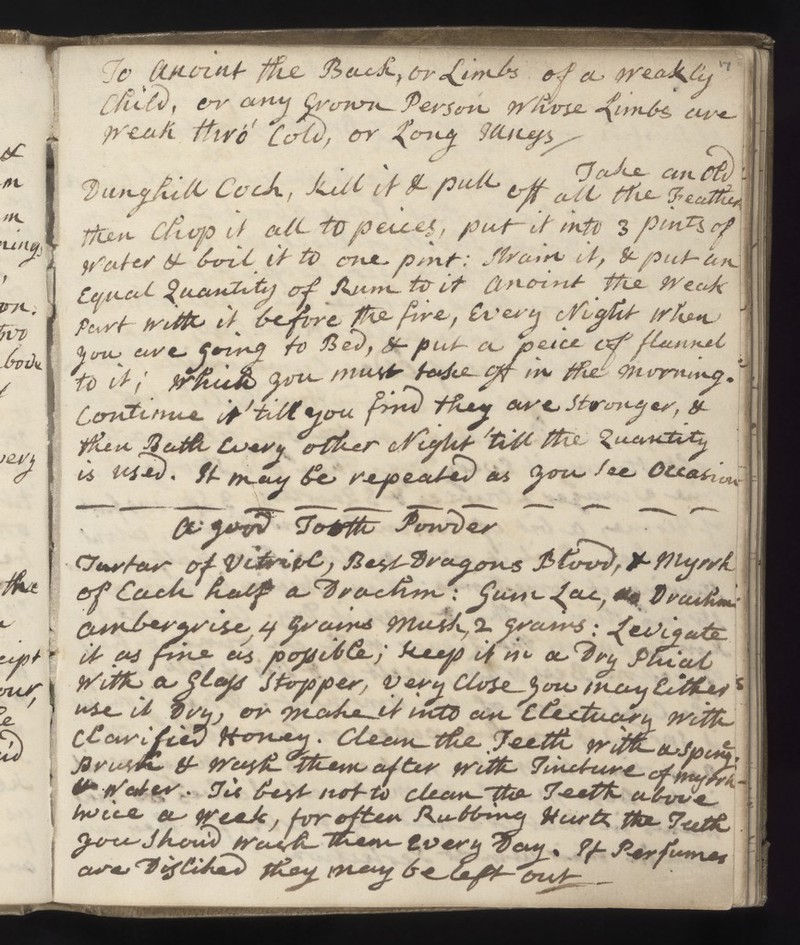 17
To Anoint the Back, or Limbs of a weakly
Child, or any Grown Person whose Limbs are
weak thro' Cold, or Long
Take an old
Dunghill Cock, kill it & pull off all the Feathers
then Chop it all to peices, put it into 3 pints of
water & boil it to one pint: Strain it, & put an
Equal Quantity of Rum to it Anoint the weak
part with it before the fire, Every Night when
you are going to Bed, & put a peice of flannel
to it; which you must take off in the morning.
Continue it 'till you find they are Stronger, &
then Bath Every other Night 'till the Quantity
is used. It may be repeated as you See Occasion
A good Tooth Powder
Tartar of Vitriol, Best Dragons Blood, & Myrrh
of Each half a Drachm: Gum Lac, a Drachm
ambergrise, 4 Grains Musk, 2 grains: Levigate
it as fine as possible; keep it in a Dry Phial
with a Glass Stopper, very Close you may Either
use it Dry, or make it into an Electuary with
Clarified Honey. Clean the Teeth with a Spung
Brush & wash them after with Tincture of myrrh
& water. Tis best not to clean the Teeth above
twice a week, for often Rubbing Hurts the Teeth
you Shou'd wash them Every Day. If Perfumes
are Disliked they may be left out
&
m
m
ning
on.
two
above
very
the
ceipt
our,